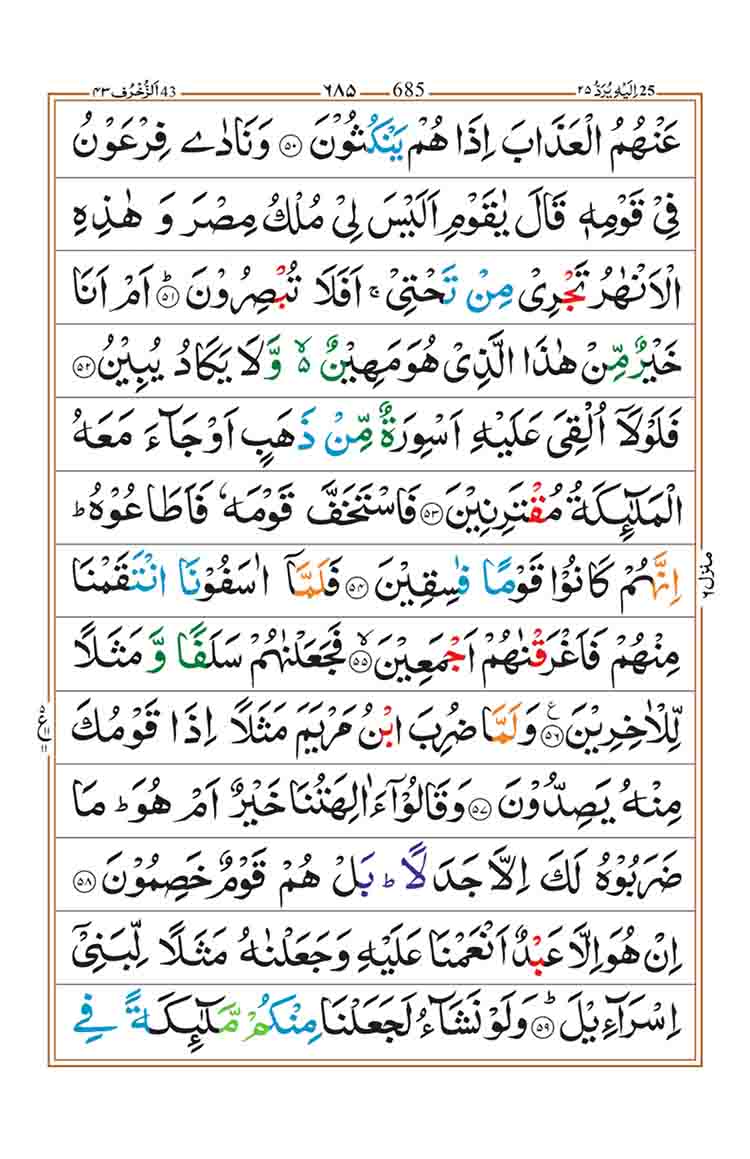 اِلَيْهِ يُرَدُّ ٢٥ 25 ٦٨٥ 685 اَلزُّخْرُف ٤٣ 43
عَنْهُمُ الْعَذَابَ اِذَا هُمْ يَنْكُثُوْنَ ۝٥٠ وَنَادٰى فِرْعَوْنُ
فِيْ قَوْمِهٖ قَالَ يٰقَوْمِ اَلَيْسَ لِيْ مُلْكُ مِصْرَ وَ هٰذِهِ
الْاَنْهٰرُ تَجْرِيْ مِنْ تَحْتِيْ ۚ اَفَلَا تُبْصِرُوْنَ ۝٥١ ؕ اَمْ اَنَا
خَيْرٌ مِّنْ هٰذَا الَّذِيْ هُوَ مَهِيْنٌ ۙ۬ وَّ لَا يَكَادُ يُبِيْنُ ۝٥٢
فَلَوْلَاۤ اُلْقِيَ عَلَيْهِ اَسْوِرَةٌ مِّنْ ذَهَبٍ اَوْ جَآءَ مَعَهُ
الْمَلٰٓئِكَةُ مُقْتَرِنِيْنَ ۝٥٣ فَاسْتَخَفَّ قَوْمَهٗ فَاَطَاعُوْهُ ؕ
اِنَّهُمْ كَانُوْا قَوْمًا فٰسِقِيْنَ ۝٥٤ فَلَمَّاۤ اٰسَفُوْنَا انْتَقَمْنَا
مِنْهُمْ فَاَغْرَقْنٰهُمْ اَجْمَعِيْنَ ۝٥٥ ۙ فَجَعَلْنٰهُمْ سَلَفًا وَّ مَثَلًا
لِّلْاٰخِرِيْنَ ۝٥٦ ع وَلَمَّا ضُرِبَ ابْنُ مَرْيَمَ مَثَلًا اِذَا قَوْمُكَ
مِنْهُ يَصِدُّوْنَ ۝٥٧ وَقَالُوْۤا ءَاٰلِهَتُنَا خَيْرٌ اَمْ هُوَ ؕ مَا
ضَرَبُوْهُ لَكَ اِلَّا جَدَلًا ؕ بَلْ هُمْ قَوْمٌ خَصِمُوْنَ ۝٥٨
اِنْ هُوَ اِلَّا عَبْدٌ اَنْعَمْنَا عَلَيْهِ وَجَعَلْنٰهُ مَثَلًا لِّبَنِيْۤ
اِسْرَآءِيْلَ ۝٥٩ ؕ وَلَوْ نَشَآءُ لَجَعَلْنَا مِنْكُمْ مَّلٰٓئِكَةً فِي
منزل ٦
ع ٥ ١١ ١١